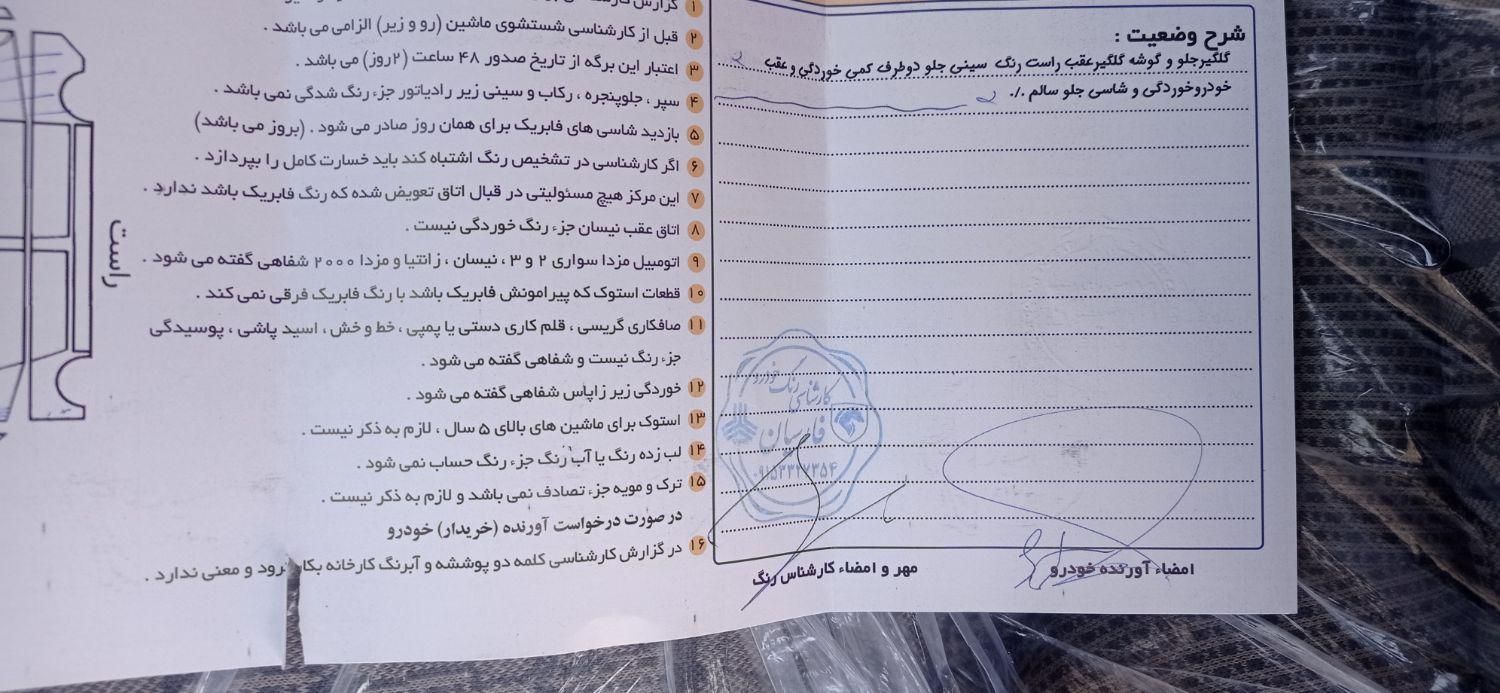 شرح وضعیت :
گلگیرجلو و گوشه گلگیرعقب راست رنگ سینی جلو دوطرف کمی خوردگی و عقب
خودروخوردگی و شاسی جلو سالم ./.
۱ گزارش
۲ قبل از کارشناسی شستشوی ماشین (رو و زیر) الزامی می باشد .
۳ اعتبار این برگه از تاریخ صدور ۴۸ ساعت (۲روز) می باشد .
۴ سپر ، جلوپنجره ، رکاب و سینی زیر رادیاتور جزء رنگ شدگی نمی باشد .
۵ بازدید شاسی های فابریک برای همان روز صادر می شود . (بروز می باشد)
۶ اگر کارشناسی در تشخیص رنگ اشتباه کند باید خسارت کامل را بپردازد .
۷ این مرکز هیچ مسئولیتی در قبال اتاق تعویض شده که رنگ فابریک باشد ندارد .
۸ اتاق عقب نیسان جزء رنگ خوردگی نیست .
۹ اتومبیل مزدا سواری ۲ و ۳ ، نیسان ، زانتیا و مزدا ۲۰۰۰ شفاهی گفته می شود .
۱۰ قطعات استوک که پیرامونش فابریک باشد با رنگ فابریک فرقی نمی کند .
۱۱ صافکاری گریسی ، قلم کاری دستی یا پمپی ، خط و خش ، اسید پاشی ، پوسیدگی
جزء رنگ نیست و شفاهی گفته می شود .
۱۲ خوردگی زیر زاپاس شفاهی گفته می شود .
۱۳ استوک برای ماشین های بالای ۵ سال ، لازم به ذکر نیست .
۱۴ لب زده رنگ یا آب رنگ جزء رنگ حساب نمی شود .
۱۵ ترک و مویه جزء تصادف نمی باشد و لازم به ذکر نیست .
در صورت درخواست آورنده (خریدار) خودرو
۱۶ در گزارش کارشناسی کلمه دو پوششه و آبرنگ کارخانه بکار نرود و معنی ندارد .
راست
کارشناسی رنگ خودرو
فارسیان
امضاء آورنده خودرو
مهر و امضاء کارشناس رنگ